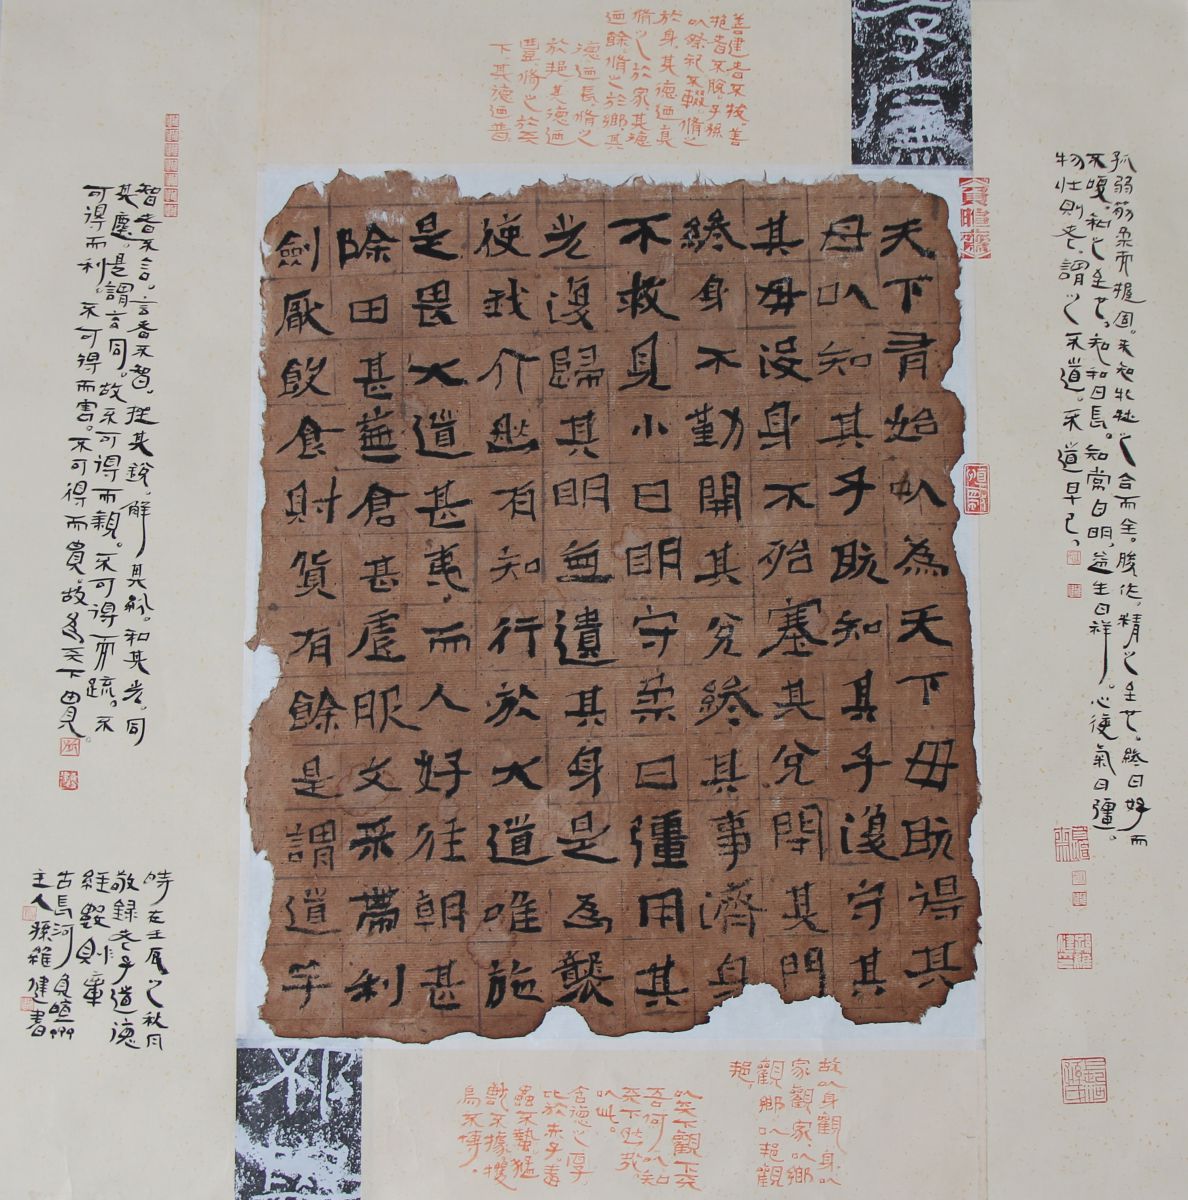 善建者不拔,善
抱者不脫,子孫
以祭祀不輟。脩之
於身,其德迺真
脩之於家,其德
迺餘,脩之於鄉,其
德迺長,脩之
於邦,其德迺
豐,脩之於天
下,其德迺普
天下有始以為天下母既得其
母以知其子既知其子復守其
其母沒身不殆塞其兌閉其門
終身不勤開其兌終其事濟身
不救見小曰明守柔曰彊用其
光復歸其明無遺其身是為襲
使我介然有知行於大道唯施
是畏大道甚夷而人好徑朝甚
除田甚蕪倉甚虛服文采帶利
劍厭飲食財貨有餘是謂道竽
故以身觀身以
家觀家以鄉
觀鄉以邦觀
邦
以天下觀下天
吾何以知
天下然哉
以此。
含德之厚
比於赤子。毒
蟲不螫,猛
獸不據,攫
鳥不搏。
弱筋柔而握固。未知牝牡之合而全。朘作,精之至也。終日好而
不嗄,和之至也。知和曰長。知常曰明,益生曰祥。心使氣曰彊。
物壯則老,謂之不道。不道早已。
智者不言。言者不智。挫其銳,解其紛。和其光,同
其塵。是謂玄同。故不可得而親。不可得而疏。不
可得而利。不可得而害。不可得而貴。故為天下貴。
時在壬辰之秋月
敬錄老子道德
經數則章
古長河負暄
主人孫維健書